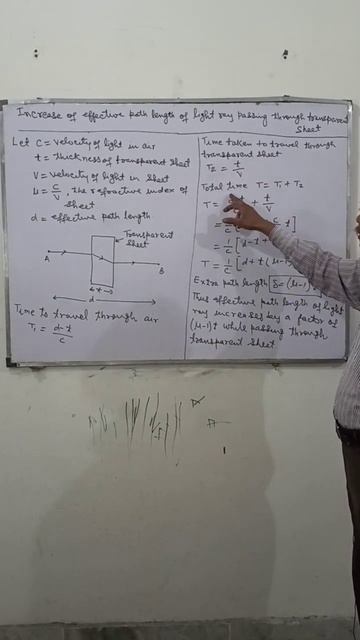 Increase of effective path length of light ray passing through transparent
Sheet
Let C = velocity of light in air
t = thickness of transparent sheet
V = velocity of light in sheet
μ = C/V, the refractive index of
sheet
d = effective path length
Transparent
sheet
A
B
t
d
Time to travel through air
T₁ = d-t/c
Time taken to travel through
transparent sheet
T₂ = t/V
Total time T = T₁ + T₂
T = + t/V
= t]
= 1/c [d-t+
T = 1/c [d+t(μ-1)
Extra path length δ=(μ-1)
Thus effective path length of light
ray increases by a factor of
(μ-1) t while passing through
transparent sheet